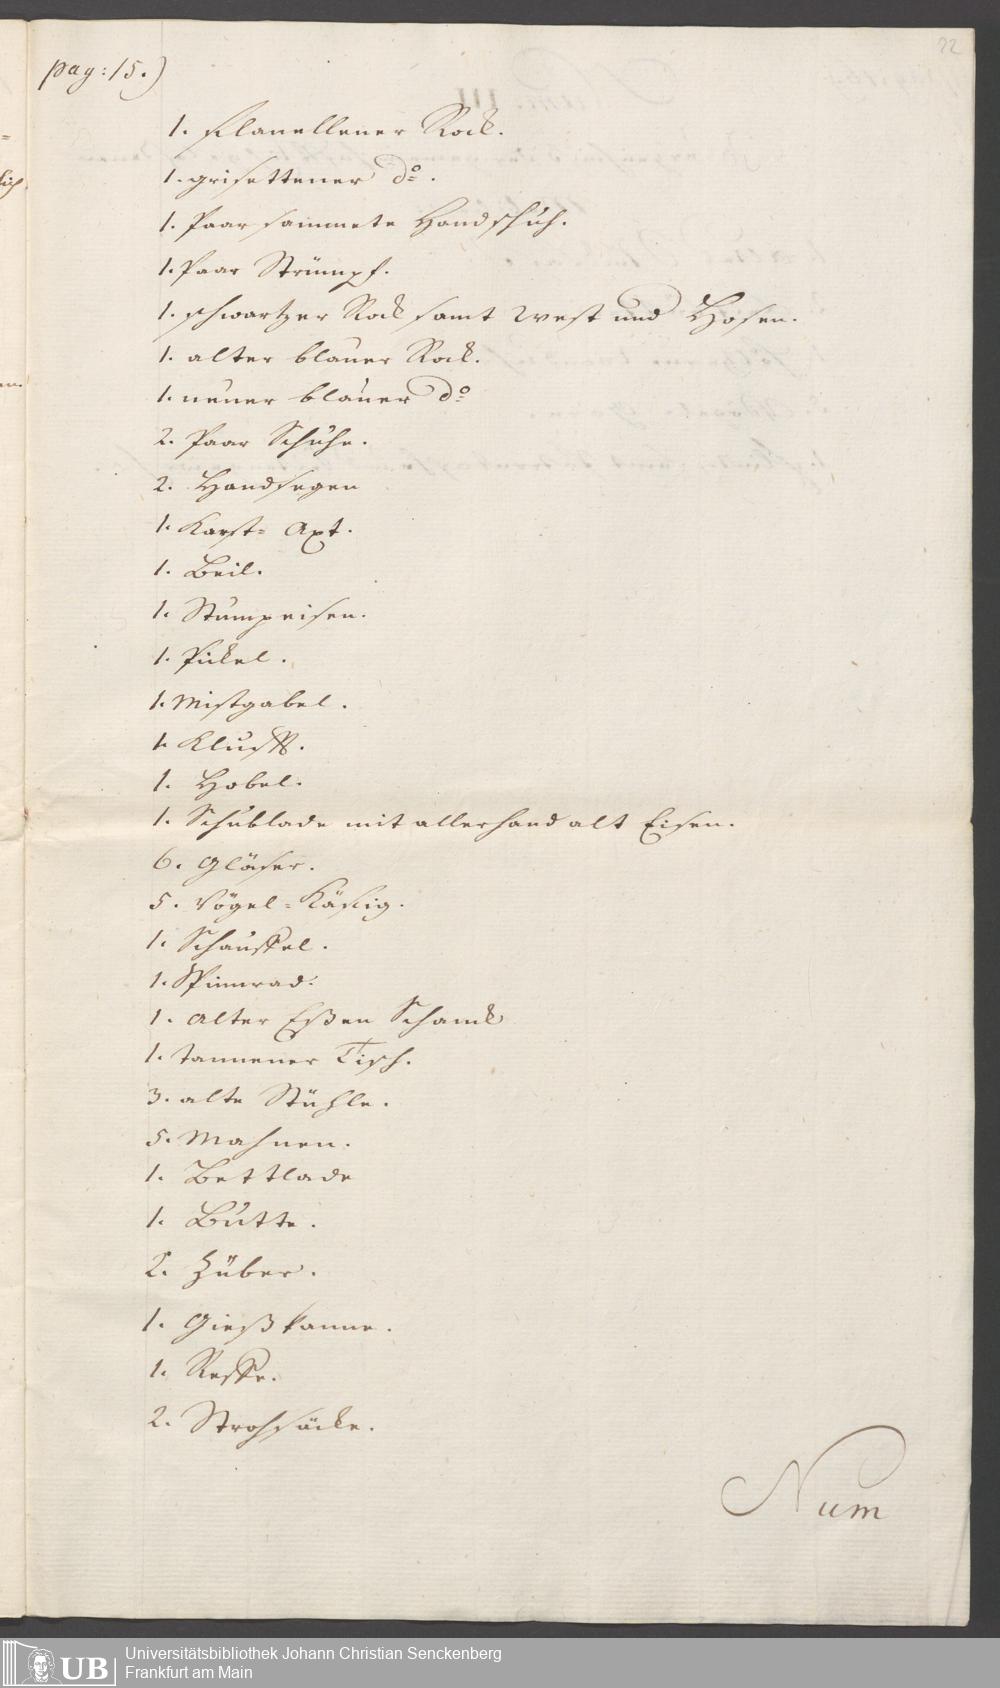 22
pag: 15.)
1. flanellener Rock.
1. grisettener do.
1. Paar sammete Handschuh.
1. Paar Strümpf.
1. schwartzer Rock samt West und Hosen.
1. alter blauer Rock.
1. neuer blauer do
2. Paar Schuhe.
2. Handsegen
1. Karst= Axt.
1. Beil.
1. Stumpeisen.
1. Pickel.
1. Mistgabel.
1.
1. Hobel.
1. Schublade mit allerhand alt Eisen.
6. Gläser.
5. Vögel=Käfig.
1. Schauffel.
1. Spinnrad.
1. alter Eßen Schanck
1. tannener Tisch.
3. alte Stühle.
5. Mahnen.
1. Bettlade
1. Butte.
2. Züber.
1. Gießkanne.
1. Reffe.
2. Strohsäcke.
Num
UB
Universitätsbibliothek Johann Christian Senckenberg
Frankfurt am Main